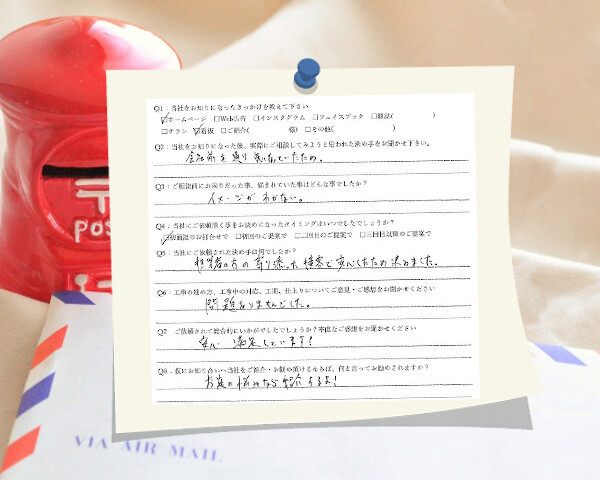 Q1：当社をお知りになったきっかけを教えて下さい
☑ホームページ □Web広告 □インスタグラム □フェイスブック □雑誌( )
□チラシ ☑看板 □ご紹介( 様) □その他( )
Q2：当社をお知りになった後、実際にご相談してみようと思われた決め手をお聞かせ下さい。
会社前を通り 気になっていたため。
Q3：ご相談前にお困りだった事、悩まれていた事はどんな事でしたか？
イメージが わかない。
Q4：当社にご依頼頂く事をお決めになったタイミングはいつでしたでしょうか？
☑初面談のお打合せで □初回のご提案で □二回目のご提案で □三回目以降のご提案で
Q5：当社にご依頼された決め手は何でしたか？
担当者の方の 寄り添った 接客で 安心したため 決めました。
Q6：工事の進め方、工事中の対応、工期、仕上りについてご意見・ご感想をお聞かせください
問題ありませんでした。
Q7 ご依頼されて総合的にいかがでしたでしょうか？率直なご感想をお聞かせください
安心 満足しています！
Q8：仮にお知り合いへ当社をご紹介・お勧め頂けるならば、何と言ってお勧めされますか？
お庭の悩みなら 紹介するよ！
POS
VIA AIR MAIL